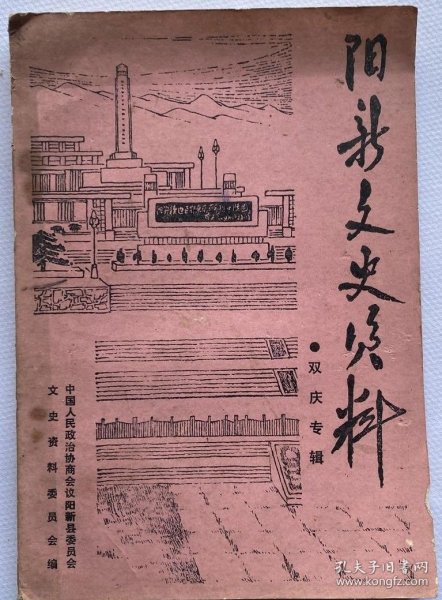 阳新文史资料
●双庆专辑
中国人民政治协商会议阳新县委员会
文史资料委员会编
孔夫子旧书网
www.kongfz.com